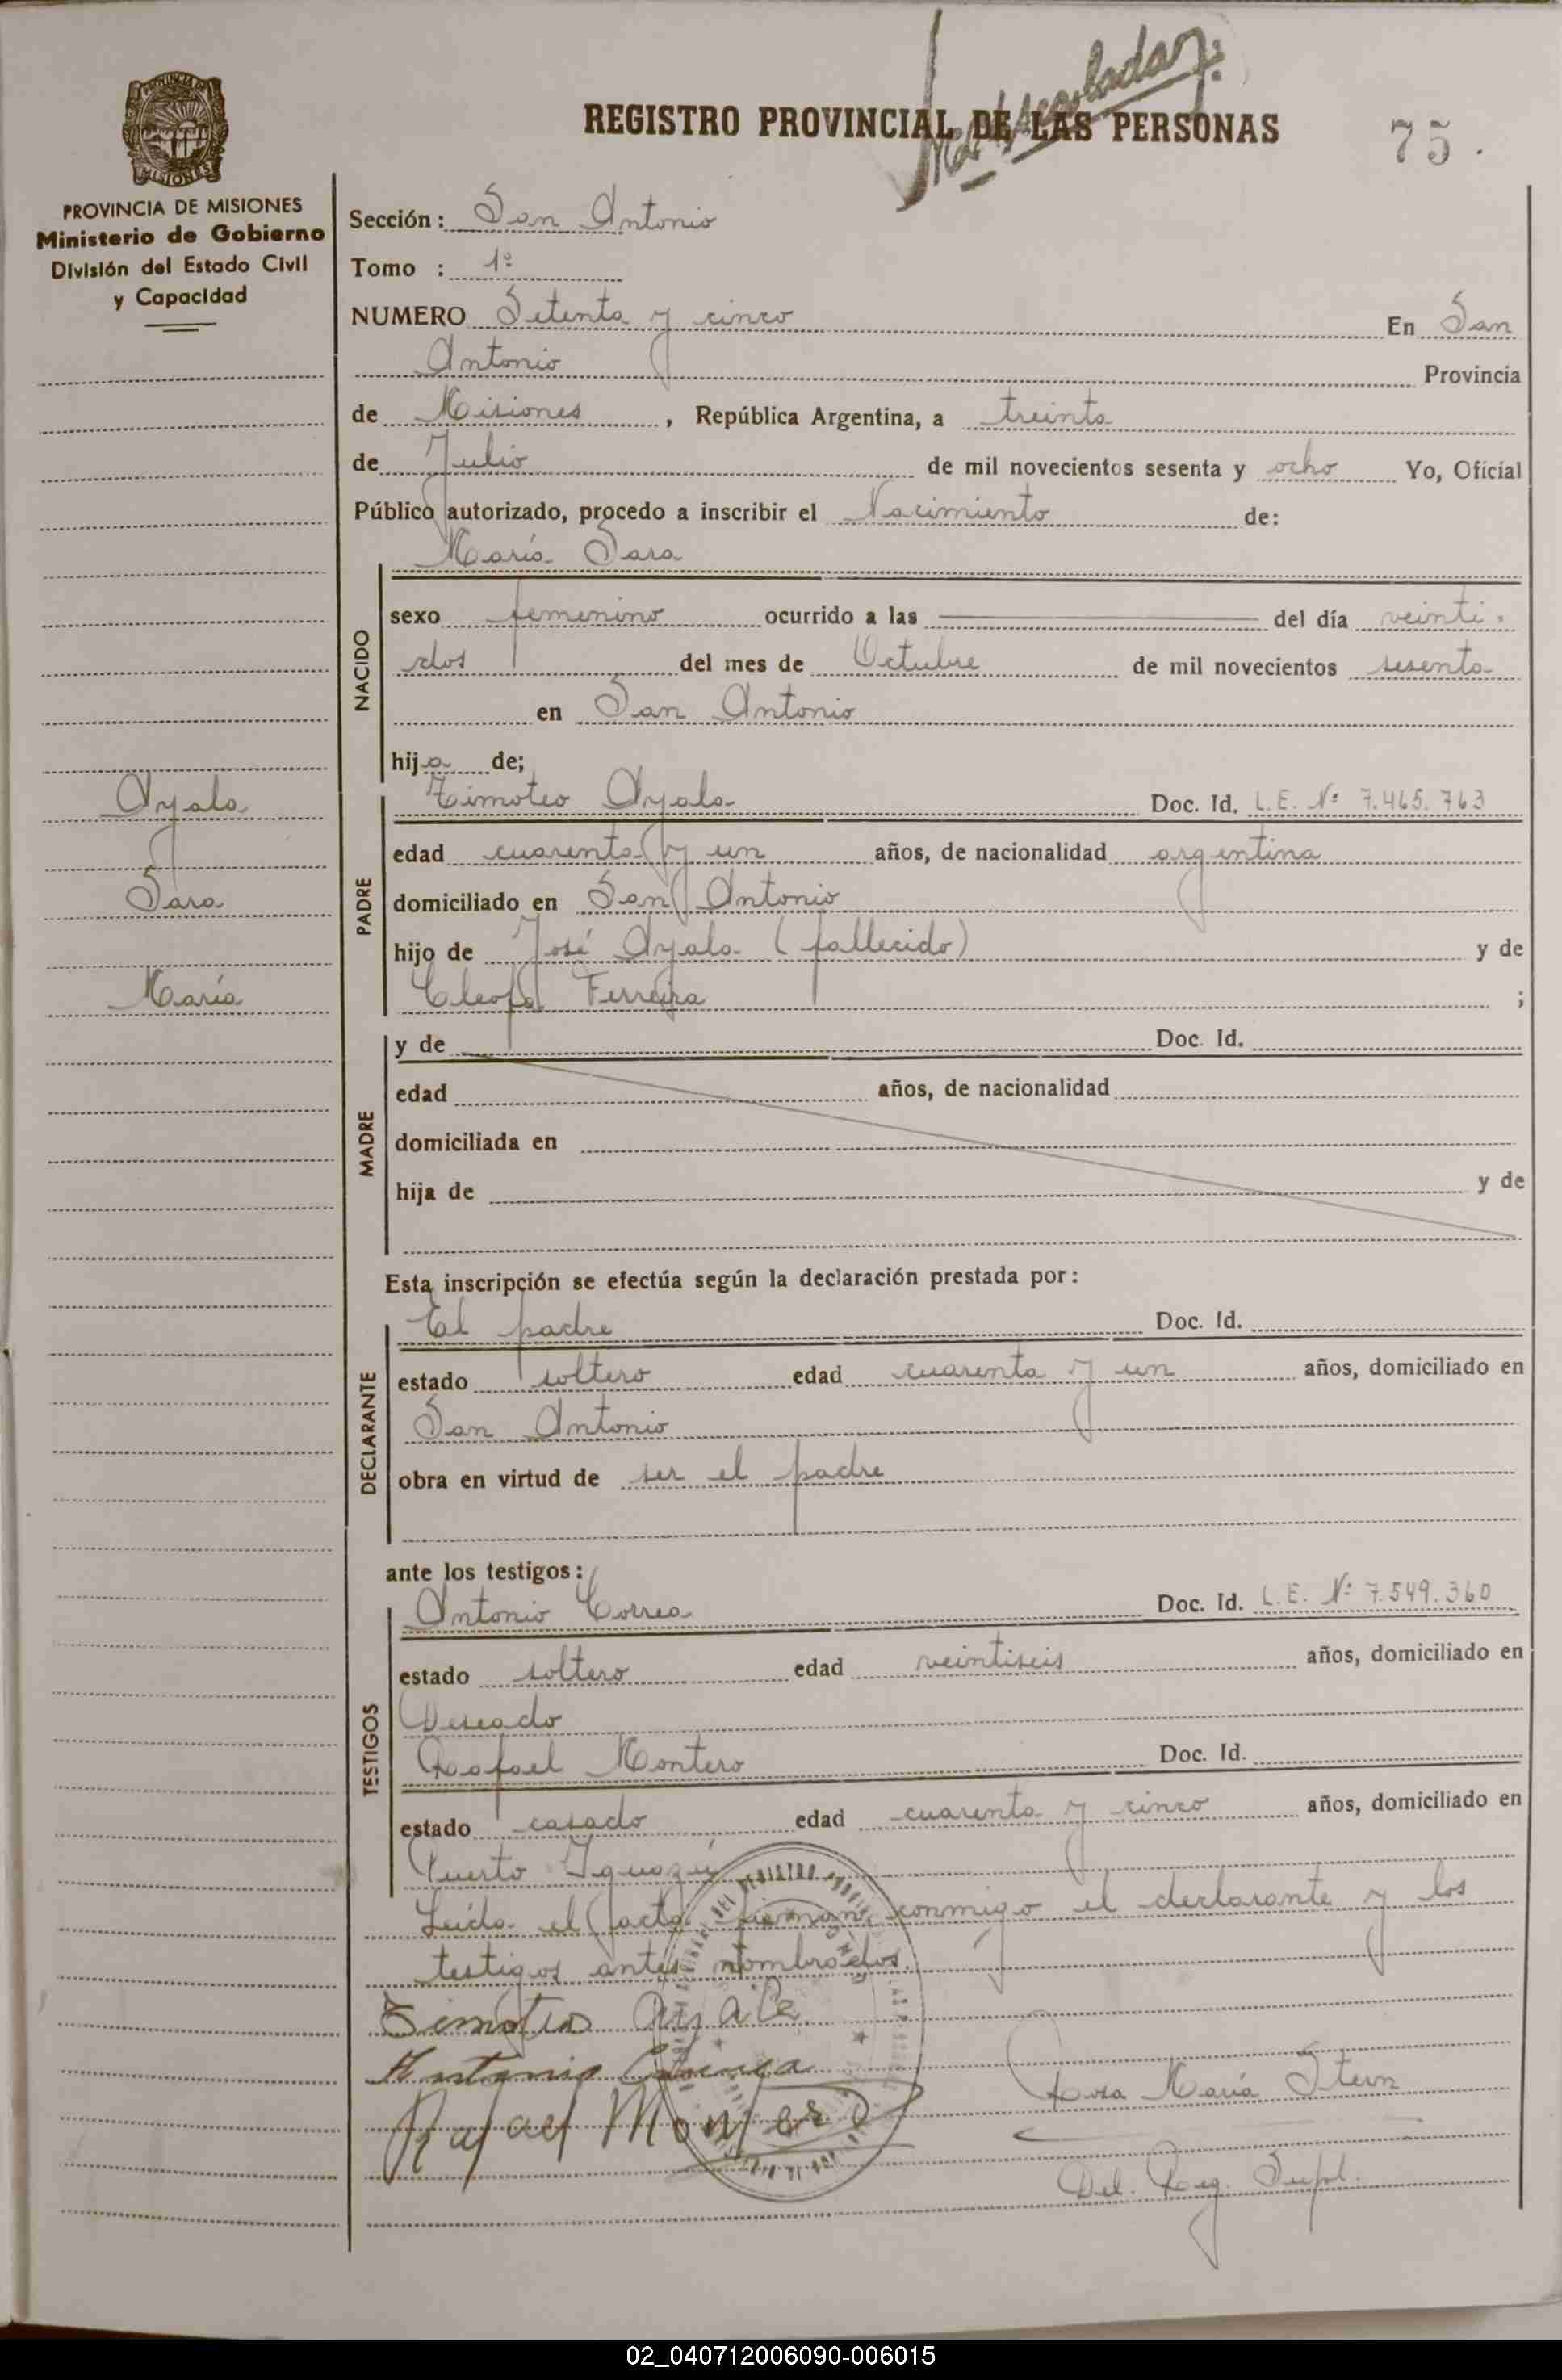 REGISTRO PROVINCIAL DE LAS PERSONAS
75.
PROVINCIA DE MISIONES
Ministerio de Gobierno
División del Estado Civil
y Capacidad
Sección: San Antonio
Tomo : 1º
NUMERO Setenta y cinco En San
Antonio Provincia
de Misiones, República Argentina, a treinta
de Julio de mil novecientos sesenta y ocho Yo, Oficial
Público autorizado, procedo a inscribir el Nacimiento de:
María Sara
NACIDO
sexo femenino ocurrido a las del día veinti-
dos del mes de Octubre de mil novecientos sesenta
en San Antonio
hija de;
Ayala
Sara
María
PADRE
Timoteo Ayala Doc. Id. L.E. Nº 7.465.763
edad cuarenta y un años, de nacionalidad argentina
domiciliado en San Antonio
hijo de José Ayala (fallecido) y de
Cleofa Ferreira ;
MADRE
y de Doc. Id.
edad años, de nacionalidad
domiciliada en
hija de y de
Esta inscripción se efectúa según la declaración prestada por:
DECLARANTE
El padre Doc. Id.
estado soltero edad cuarenta y un años, domiciliado en
San Antonio
obra en virtud de ser el padre
ante los testigos:
TESTIGOS
Antonio Correa Doc. Id. L.E. Nº 7.549.360
estado soltero edad veintiseis años, domiciliado en
Deseado
Rafael Montero Doc. Id.
estado casado edad cuarenta y cinco años, domiciliado en
Puerto Iguazú
Leída el acta firman conmigo el declarante y los
testigos antes nombrados.
Timoteo Ayala
Antonio Correa
Rafael Montero
Rosa María Stern
Del. Reg. Supl.
02_040712006090-006015